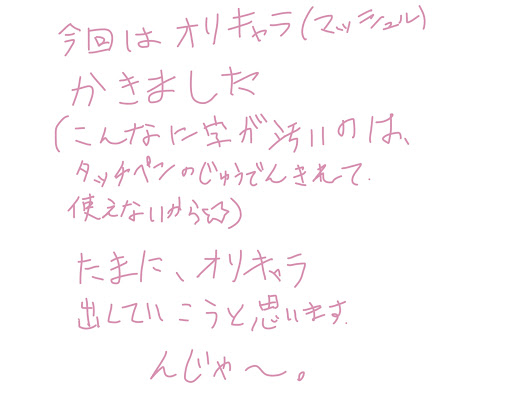 今回はオリキャラ(マッシュル)
かきました
(こんなに字が汚いのは、
タッチペンのじゅうでんきれて
使えないから☆)
たまに、オリキャラ
出していこうと思います。
んじゃ〜。